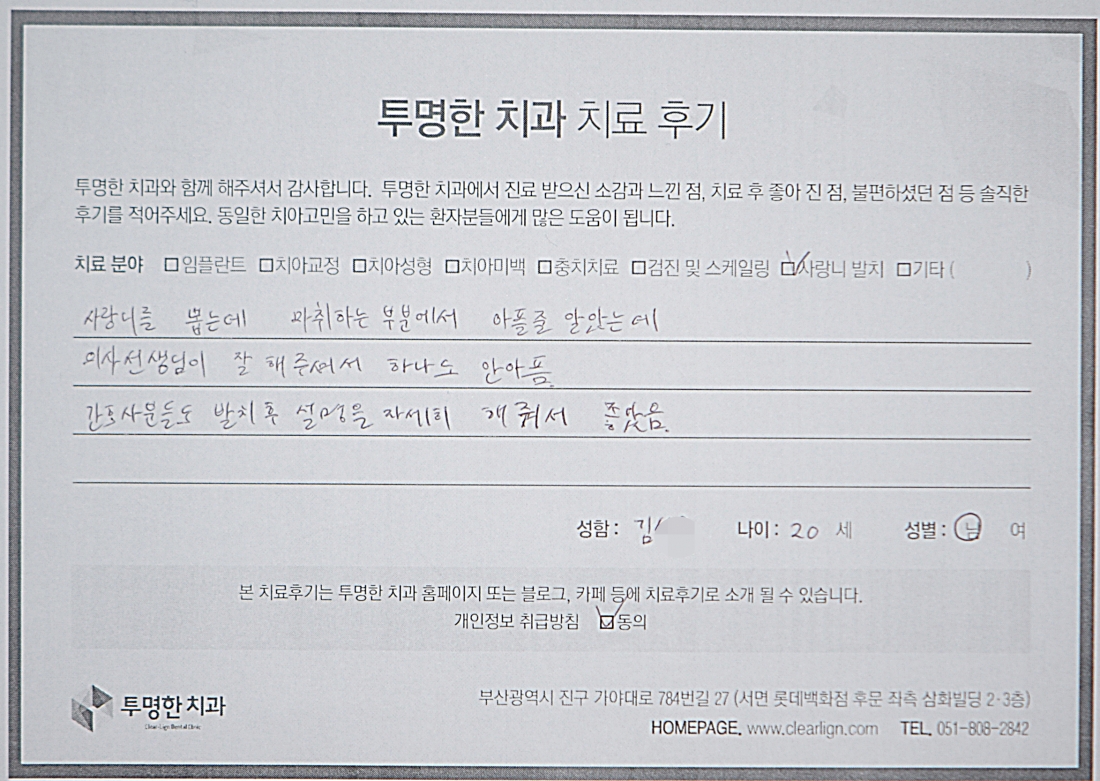 투명한 치과 치료 후기
투명한 치과와 함께 해주셔서 감사합니다. 투명한 치과에서 진료 받으신 소감과 느낀 점, 치료 후 좋아 진 점, 불편하셨던 점 등 솔직한
후기를 적어주세요. 동일한 치아고민을 하고 있는 환자분들에게 많은 도움이 됩니다.
치료 분야 □임플란트 □치아교정 □치아성형 □치아미백 □충치치료 □검진 및 스케일링 ☑사랑니 발치 □기타 ( )
사랑니를 뽑는데 마취하는 부분에서 아플줄 알았는데
의사선생님이 잘 해주셔서 하나도 안아픔.
간호사분들도 발치후 설명을 자세히 해줘서 좋았음.
성함 : 김 나이 : 20 세 성별 : 남 여
본 치료후기는 투명한 치과 홈페이지 또는 블로그, 카페 등에 치료후기로 소개 될 수 있습니다.
개인정보 취급방침 ☑동의
투명한 치과
Clear-Lign Dental Clinic
부산광역시 진구 가야대로 784번길 27 (서면 롯데백화점 후문 좌측 삼화빌딩 2·3층)
HOMEPAGE. www.clearlign.com TEL. 051-808-2842